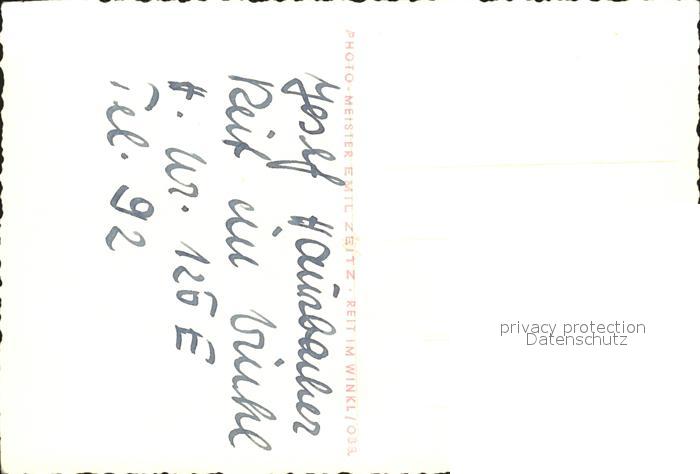 PHOTO-MEISTER EMIL ZEITZ · REIT IM WINKL/OBB.
Josef Hausbacher
Reit im Winkl
H. Nr. 126 E
Tel. 92
privacy protection
Datenschutz